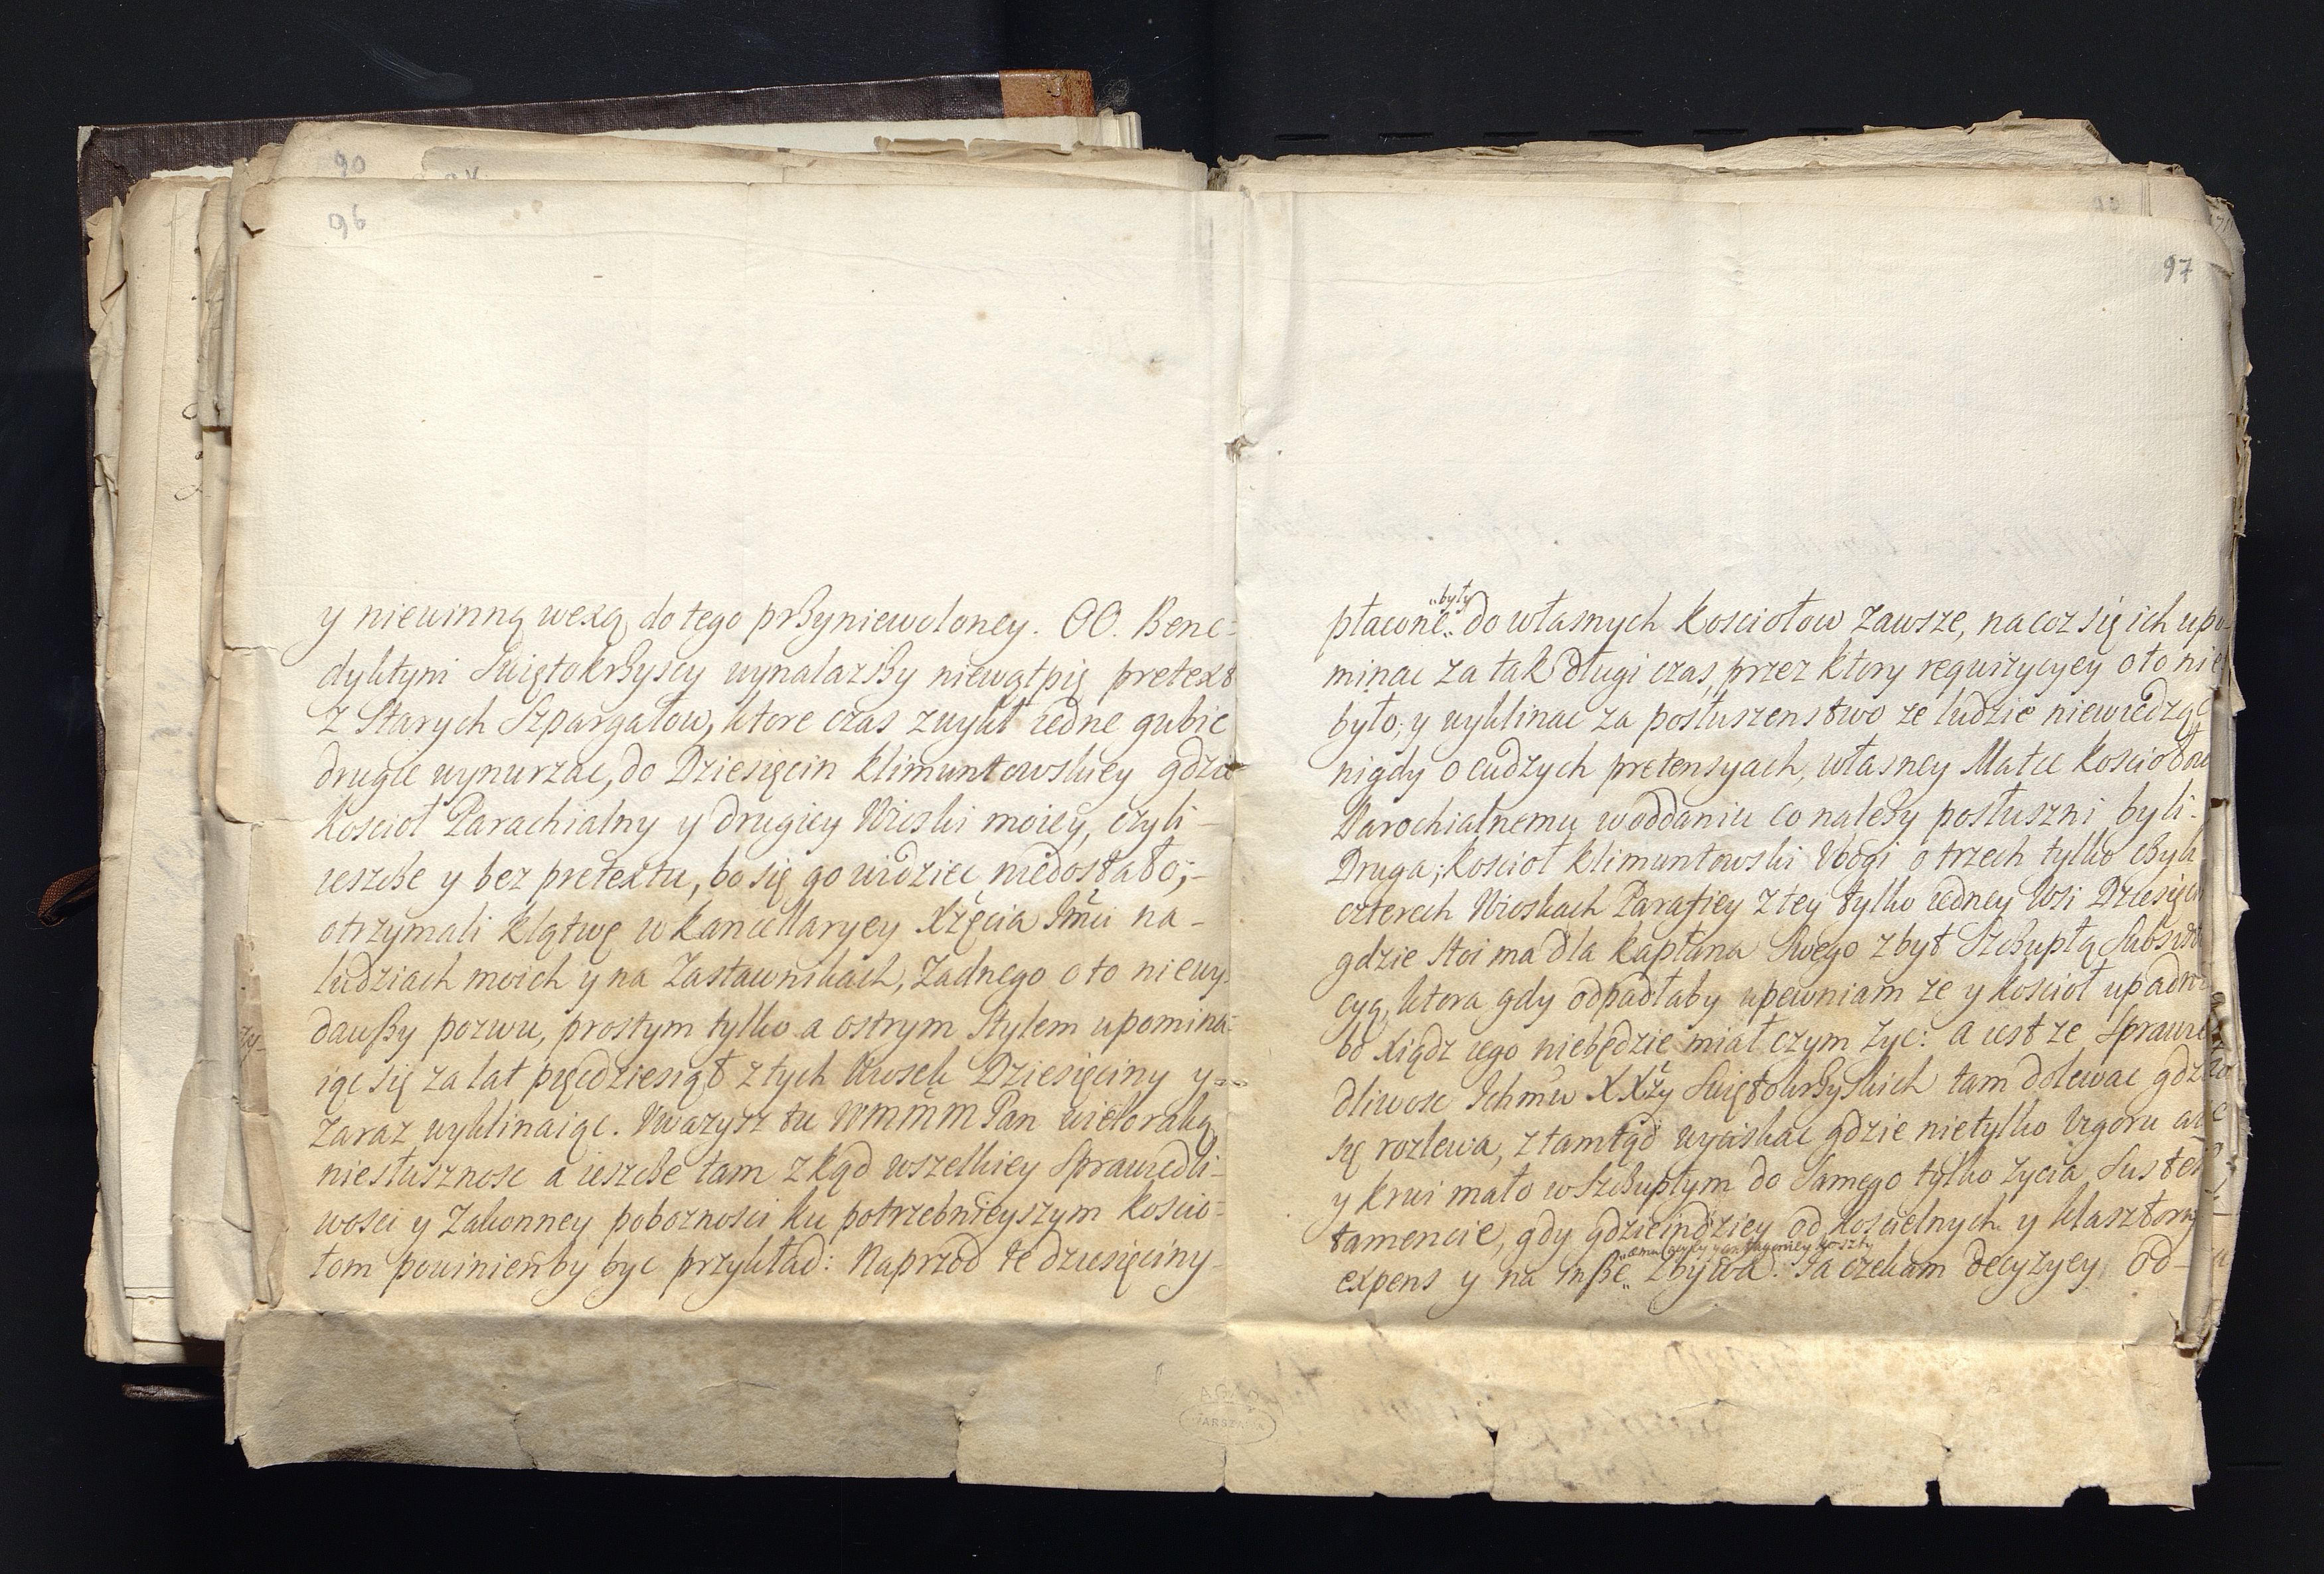 90
96
y niewinną wexą do tego przyniewoloney. OO. Bene-
dyktyni Swiętokrzyscy wynalazszy niewątpię pretext
z Starych Szpargałow, ktore czas zwykł iedne gubic
drugie wynurzac, do Dziesięcin klimuntowskiey gdzie
kosciol Parachialny y drugiey Wioski moiey, czyli-
ieszcze y bez pretextu, bo się go widziec niedostało;-
otrzymali klątwę w kancellaryey Xżęcia Jmci na-
ludziach moich y na Zastawnikach, Zadnego o to niewy-
dawszy pozwu, prostym tylko a ostrym Stylem upomina-
iąc się za lat pięcdziesiąt z tych Wiosek Dziesięciny y-
Zaraz wyklinaiąc. Uwazysz tu WMMM Pan wieloraką
niesłusznosc a ieszcze tam zkąd wszelkiey Sprawiedli-
wosci y Zakonney poboznosci ku potrzebnieyszym koscio-
łom powinienby byc przykład: Naprzod te dziesięciny-
97
płacone „były„ do własnych kosciołow zawsze, na coz się ich upo-
minac za tak długi czas, przez ktory requizycyey o to nie
było; y wyklinac za posłuszenstwo ze ludzie niewiedząc
nigdy o cudzych pretensyach, własney Matce kosciołowi
Parochialnemu w oddaniu co nalezy posłuszni byli.
Druga; kosciol klimuntowski Ubogi o trzech tylko czyli
czterech Wioskach Parafiey z tey tylko iedney Wsi Dziesięcin
gdzie stoi ma dla kapłana Swego zbyt Szczupłą Subsisten
cyą, ktora gdy odpadłaby upewniam ze y kosciol upadnie
bo Xiądz iego niebędzie miał czym zyc: a iest ze Sprawie
dliwosc Ichmciow XXzy Swiętokrzyskich tam dolewac gdzie
się rozlewa, z tamtąd wyciskac gdzie nietylko Vzgoru ale
y krwi mało w Szczupłym do Samego tylko zycia Susten
tamencie, gdy gdzieindziey od koscielnych y klasztorny
expens y na insze „ zbywa. Ja czekam decyzyey od-
AGAD
WARSZAWA